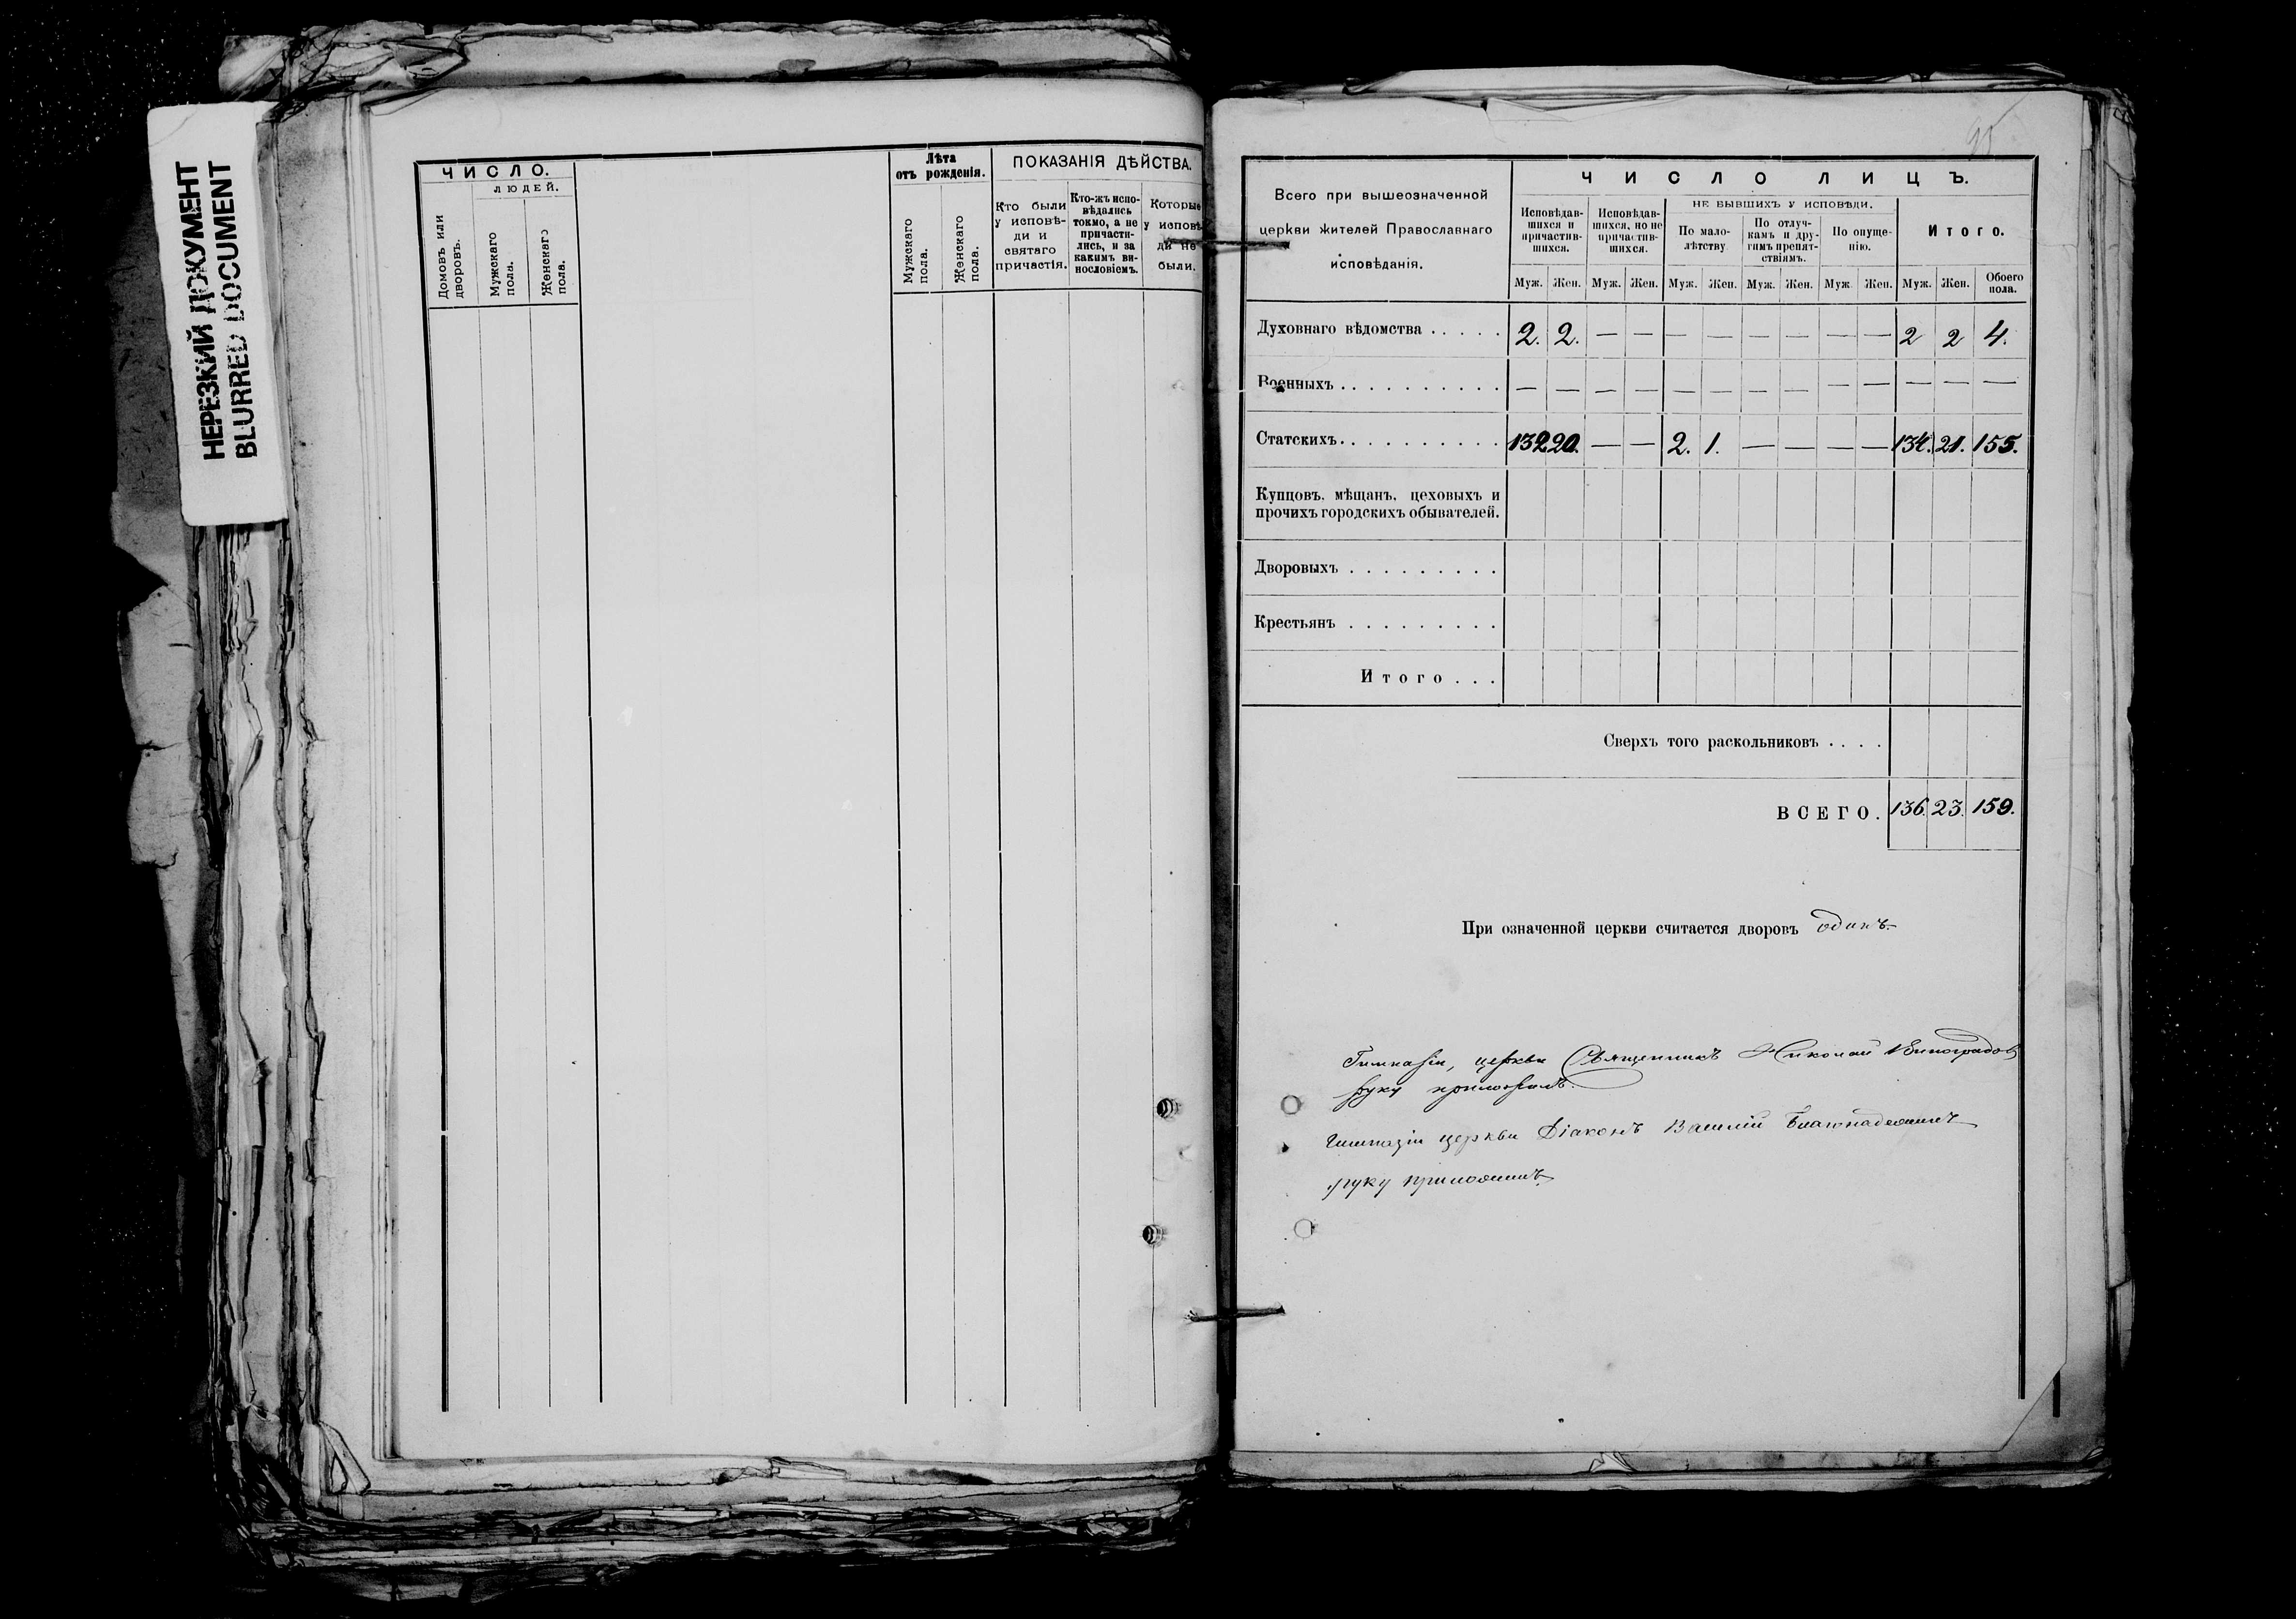 НЕРЕЗКИЙ ДОКУМЕНТ
BLURRED DOCUMENT
ЧИСЛО.
ЛЮДЕЙ.
Домовъ или дворовъ.
Мужскаго пола.
Женскаго пола.
Лѣта
отъ рожденія.
Мужскаго пола.
Женскаго пола.
ПОКАЗАНІЯ ДѢЙСТВА.
Кто были
у исповѣ-
ди и
святаго
причастія.
Кто-жъ испо-
вѣдались
токмо, а не
причасти-
лись, и за
какимъ ви-
нословіемъ.
Которые
у исповѣ
ди не
были.
95
Всего при вышеозначенной
церкви жителей Православнаго
исповѣданія.
ЧИСЛО ЛИЦЪ.
Исповѣдав-
шихся и
причастив-
шихся.
Исповѣдав-
шихся, но не
причастив-
шихся.
НЕ БЫВШИХЪ У ИСПОВѢДИ.
По мало-
лѣтству
По отлуч-
камъ и дру-
гимъ препят-
ствіямъ.
По опуще-
нію.
Итого.
Муж. Жен. Муж. Жен. Муж. Жен. Муж. Жен. Муж. Жен. Муж. Жен. Обоего пола.
Духовнаго вѣдомства . . . . . 2. 2. — — — — — — — — 2 2 4.
Военныхъ . . . . . . . . . . — — — — — — — — — — — — —
Статскихъ. . . . . . . . . . 132 20. — — 2. 1. — — — — 134. 21. 155.
Купцовъ, мѣщанъ, цеховыхъ и
прочихъ городскихъ обывателей.
Дворовыхъ . . . . . . . . .
Крестьянъ . . . . . . . . .
Итого . . .
Сверхъ того раскольниковъ . . . .
ВСЕГО. 136. 23. 159.
При означенной церкви считается дворовъ одинъ.
Гимназіи, церкви Священникъ Николай Виноградовъ
руку приложилъ.
Гимназіи церкви Діаконъ Василій
руку приложилъ